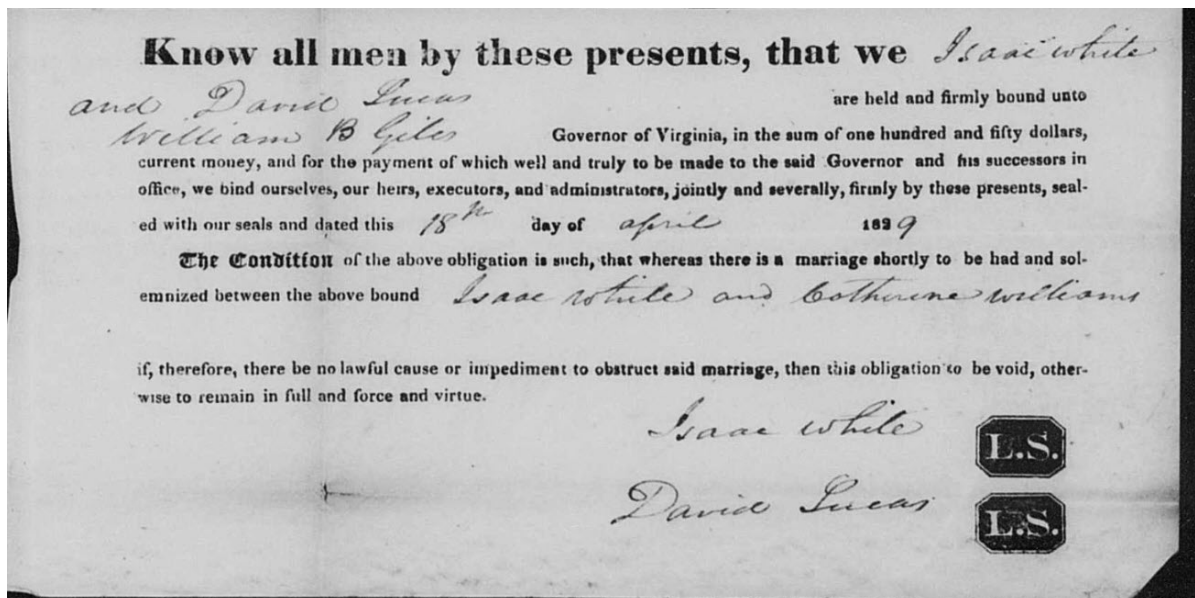 Know all men by these presents, that we Isaac White
and David Lucas are held and firmly bound unto
William B Giles Governor of Virginia, in the sum of one hundred and fifty dollars,
current money, and for the payment of which well and truly to be made to the said Governor and his successors in
office, we bind ourselves, our heirs, executors, and administrators, jointly and severally, firmly by these presents, seal-
ed with our seals and dated this 18th day of april 1829
The Condition of the above obligation is such, that whereas there is a marriage shortly to be had and sol-
emnized between the above bound Isaac White and Catherine Williams
if, therefore, there be no lawful cause or impediment to obstruct said marriage, then this obligation to be void, other-
wise to remain in full and force and virtue.
Isaac White L.S.
David Lucas L.S.